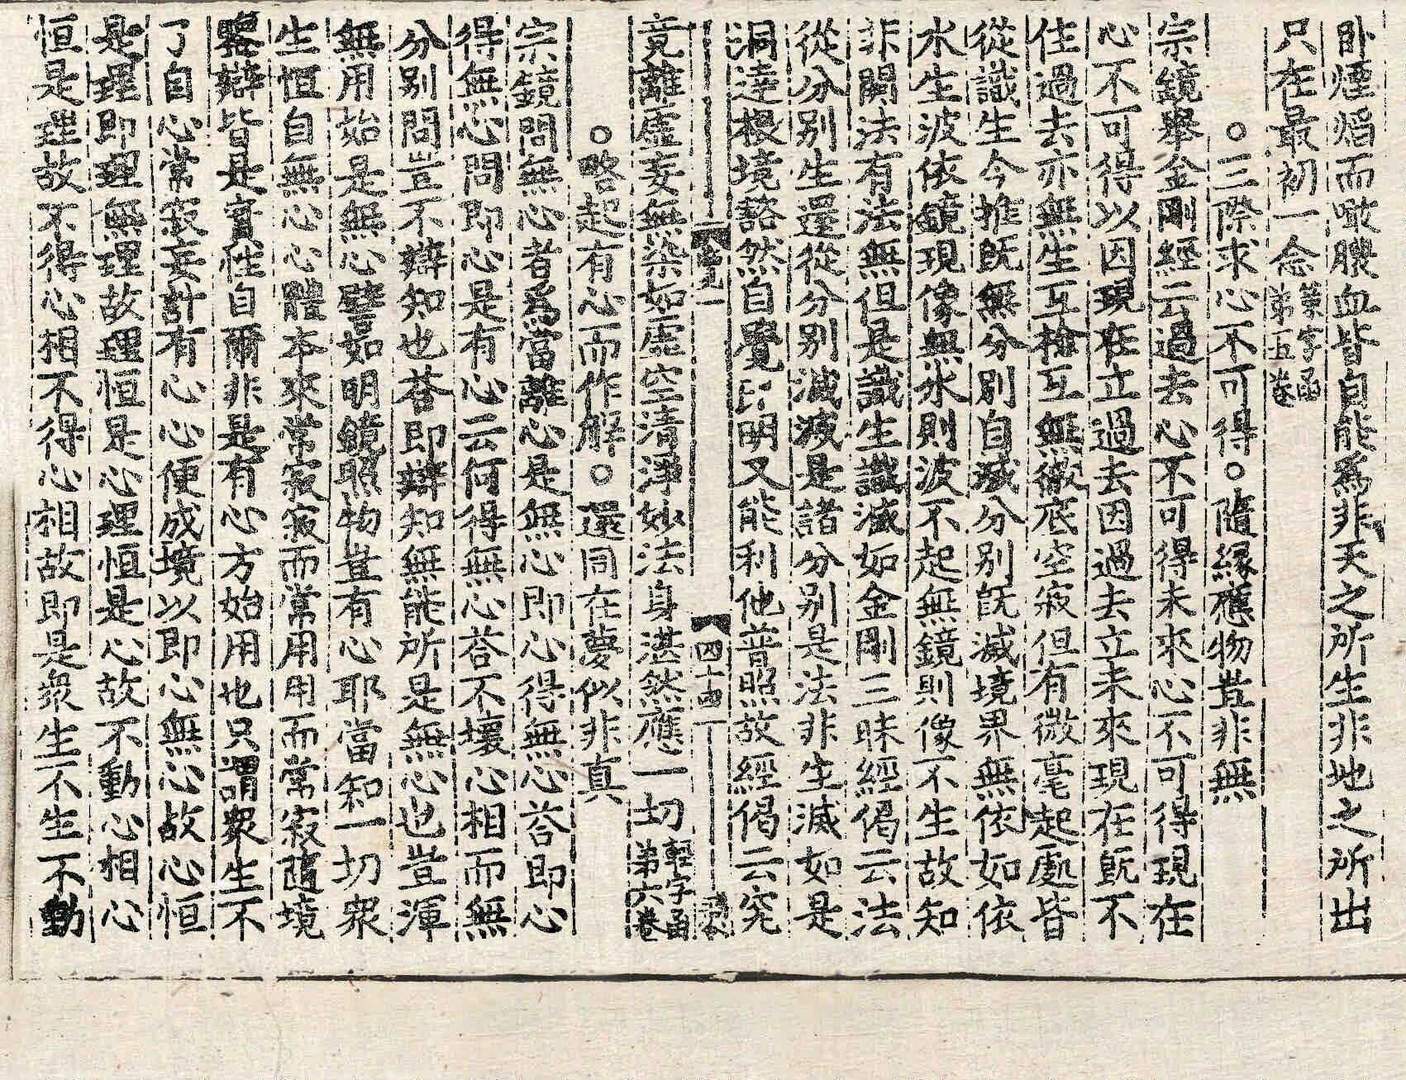 卧煙焰而噉膿血皆自能爲非天之所生非地之所出
只在最初一念策字函第五卷
○三際求心不可得○隨緣應物豈非無
宗鏡舉金剛經云過去心不可得未來心不可得現在
心不可得以因現在立過去因過去立未來現在旣不
住過去亦無生互檢互無徹底空寂但有微毫起處皆
從識生今推旣無分別自滅分別旣滅境界無依如依
水生波依鏡現像無水則波不起無鏡則像不生故知
非關法有法無但是識生識滅如金剛三昧經偈云法
從分別生還從分別滅滅是諸分別是法非生滅如是
洞達根境豁然自覺旣明又能利他普照故經偈云究
四十四
竟離虛妄無染如虛空清淨妙法身湛然應一切輕字函第六卷
○略起有心而作解○還同在夢似非真
宗鏡問無心者爲當離心是無心即心得無心荅即心
得無心問即心是有心云何得無心荅不壞心相而無
分別問豈不辯知也荅即辯知無能所是無心也豈渾
無用始是無心譬如明鏡照物豈有心耶當知一切衆
生恒自無心心體本來常寂寂而常用用而常寂隨境
鑒辯皆是實性自爾非是有心方始用也只謂衆生不
了自心常寂妄計有心心便成境以即心無心故心恒
是理即理無理故理恒是心理恒是心故不動心相心
恒是理故不得心相不得心相故即是衆生不生不動